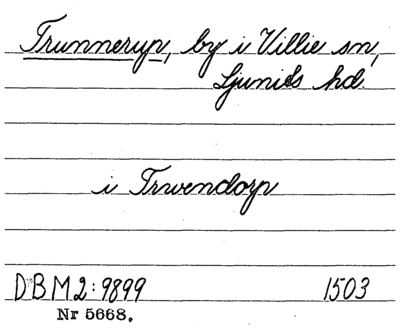 Trunnerup, by i Villie sn,
Ljunits hd.
i Trwendorp
DBM2:9899 1503
Nr 5668.